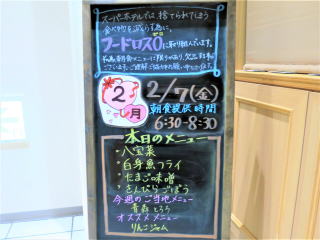 スーパーホテルでは、捨てられてしまう
食べ物を減らす為に、
フードロス0に取り組んでいます。
ゼロ
2月
2/7(金)
朝食提供時間
6:30-8:30
本日のメニュー
・八宝菜
・白身魚フライ
・たまご味噌
・きんぴらごぼう
今週のご当地メニュー
青森とろろ
オススメメニュー
りんごジャム